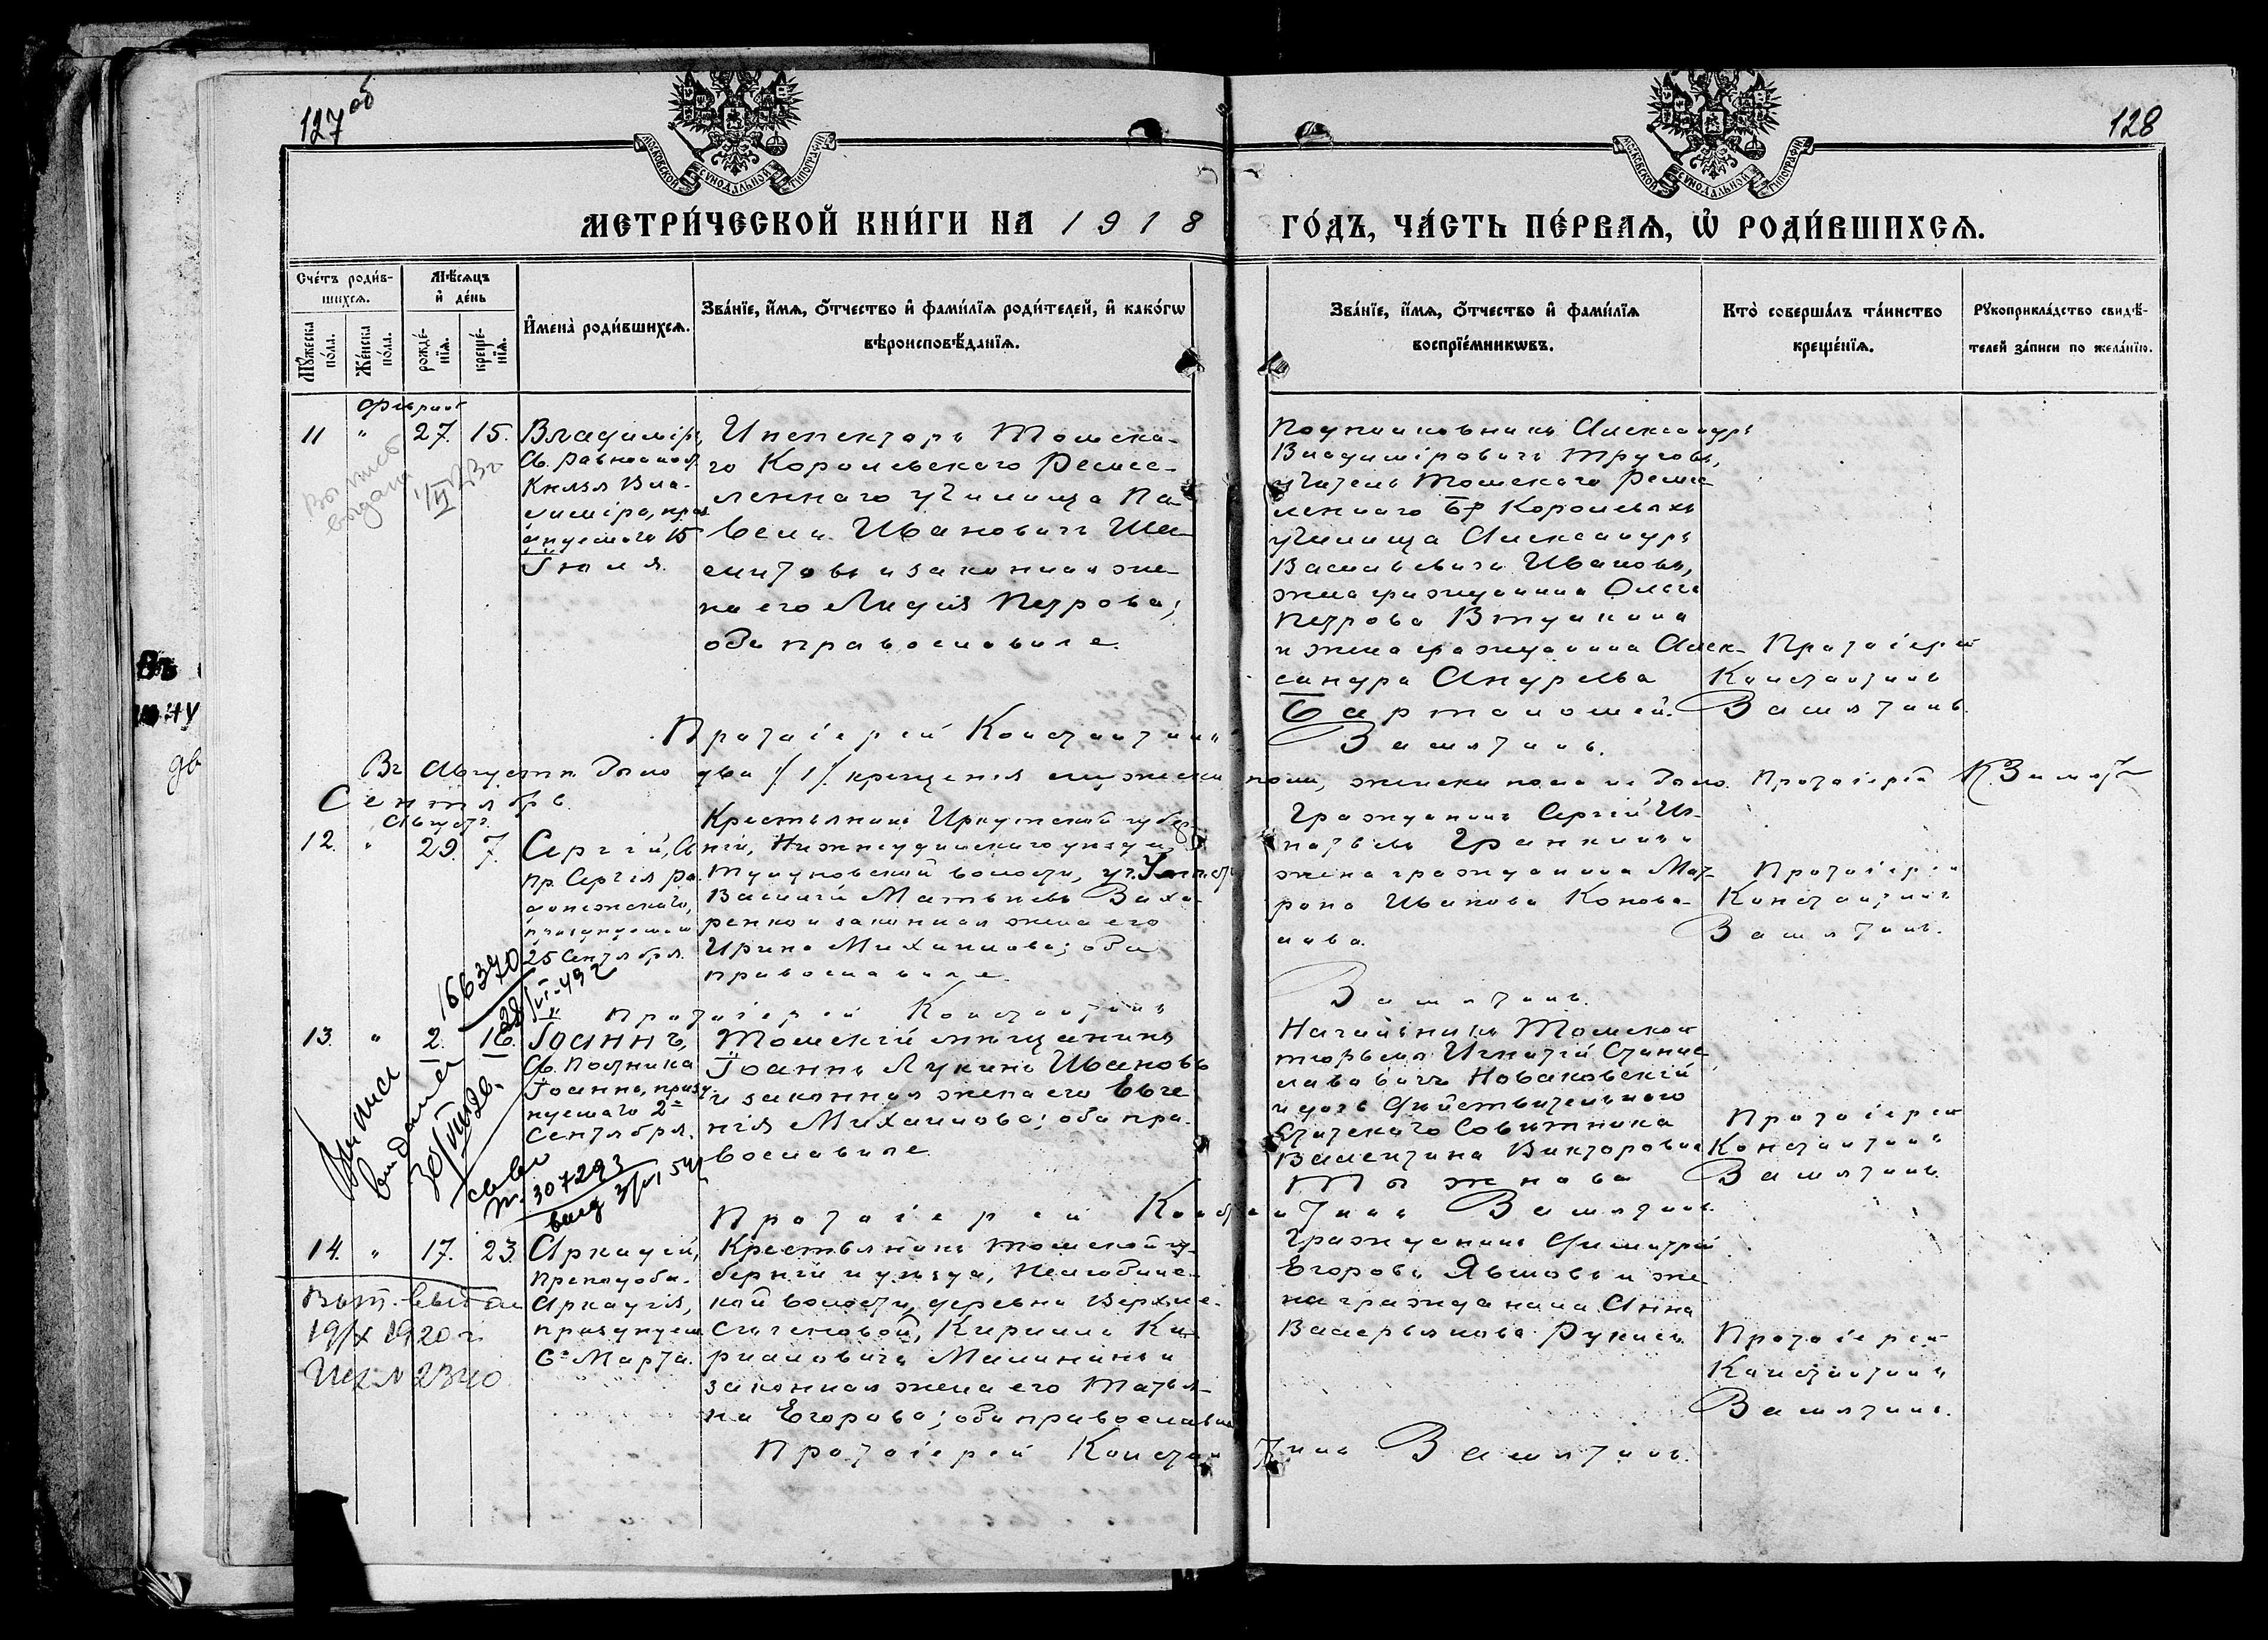 127 об
128
МОСКОВСКОЙ СѴНОДАЛЬНОЙ ТИПОГРАФІИ
МОСКОВСКОЙ СѴНОДАЛЬНОЙ ТИПОГРАФІИ
МЕТРИ́ЧЕСКОЙ КНИ́ГИ НА 1918 ГО́ДЪ, ЧА́СТЬ ПЕ́РВАѦ, Ѽ РОДИ́ВШИХСѦ.
Сче́тъ роди́в-
шихсѧ.
Мѣ́сѧцъ
и҆ де́нь
Мꙋ́жеска
по́ла.
Же́нска
по́ла.
рожде́-
нїѧ.
креще́-
нїѧ.
И҆мена̀ роди́вшихсѧ.
Зва́нїе, и҆́мѧ, ѻ҆́тчество и҆ фами́лїѧ роди́телей, и҆ како́гѡ
вѣроисповѣ́данїѧ.
Зва́нїе, и҆́мѧ, ѻ҆́тчество и҆ фами́лїѧ
воспрїе́мникѡвъ.
Кто̀ соверша́лъ та́инство
креще́нїѧ.
Рꙋкоприкла́дство свидѣ́-
телей за́писи по жела́нїю.
11 " 27. 15.
Владиміръ,
Св. Равноапос.
Князя Вла-
диміра, праз
днуемаго 15
Іюля.
Инспекторъ Томска-
го Корольевского Ремес-
леннаго училища Па-
велъ Ивановичъ
и законная же-
на его Лидія Петрова;
оба православные.
Подполковникъ Александръ
Владиміровичъ Труговъ,
учитель Томскаго Ремес-
леннаго бр Королевыхъ
училища Александръ
Васильевичъ Ивановъ,
жена гражданина Ольга
Петрова
и жена гражданина Алек-
сандра Андреева
Протоіерей
Константинъ
Замятинъ.
Выпись
выдана
Протоіерей Константинъ Замятинъ.
Въ Августѣ было два /1/ крещенія мужска пола, женска пола не было. Протоіерей К. Замят
Сентябрь.
Августъ.
12. " 29. 7.
Сергій, Св
Пр. Сергія Ра-
донежскаго,
празднуемаго
25 Сентября.
Крестьянинъ Иркутской губер-
ніи, Нижнеудинскаго уѣзда,
Тулуновской волости,
Василій Матвѣевъ Захa-
ренко и законная жена его
Ирина Михаилова; оба
православные
Гражданинъ Сергій Иг-
натьевъ Гранкинъ и
жена гражданина Мат-
рона Иванова Конова-
лова.
Протоіерей
Константинъ
Замятинъ.
166370
Протоіерей Константинъ Замятинъ.
13. " 2. 16.
Іоаннъ,
Св. Постника
Іоанна, праздн-
нуемаго 2-
Сентября.
Томскій мѣщанинъ
Іоаннъ Лукинъ Ивановъ
и законная жена его Евге-
нія Михаилова; оба пра-
вославные
Начальникъ Томской
тюрьмы Игнатій Станис-
лавовичъ Новаковскій
и дочь Дѣйствительнаго
Статскаго Совѣтника
Валентина Викторовна
Тыжнова
Протоіерей
Константинъ
Замятинъ.
Выписи
выданы
307293
выд
Протоіерей Константинъ Замятинъ.
14. " 17. 23.
Аркадій,
Преподобн.
Аркадія,
празднуем
6- Марта.
Крестьянинъ Томской гу-
берніи и уѣзда, Нелюбинс-
кой волости, деревни Верхне-
Сѣченовой, Кириллъ Ки-
рилловичъ Малининъ и
законная жена его Татья-
на Егорова; оба православные
Гражданинъ Димитрій
Егоровъ и же-
на гражданина Анна
Валерьянова
Протоіерей
Константинъ
Замятинъ.
Вып. выдан
19/X 1920 г.
№ 2340
Протоіерей Константинъ Замятинъ.